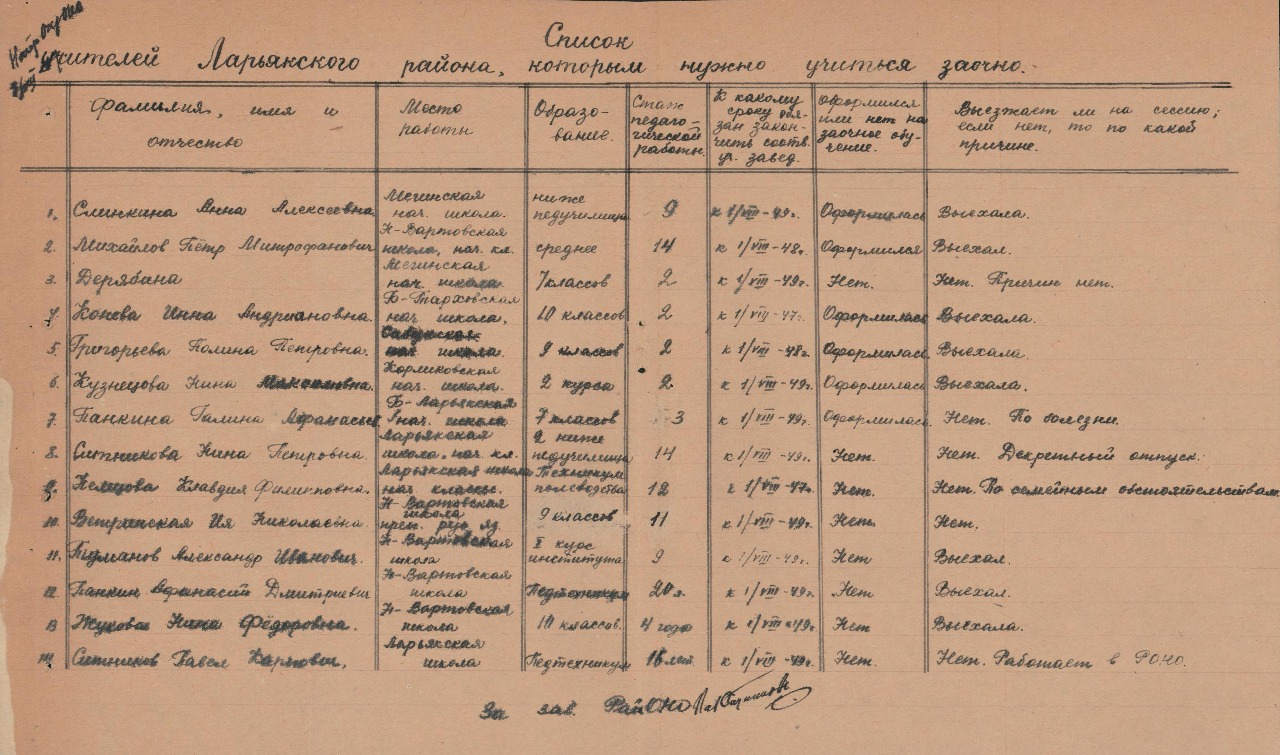 Список
учителей Ларьякского района, которым нужно учиться заочно.
Фамилия, имя и отчество
Место работы
Образование.
Стаж педагогической работы.
К какому сроку обязан закончить соотв. уч. завед.
Оформился или нет на заочное обучение.
Выезжает ли на сессию; если нет, то по какой причине.
1. Слинкина Анна Алексеевна. Мегинская нач. школа. ниже педучилища 9 к 1/VIII-49г. Оформилась Выехала.
2. Михайлов Пётр Митрофанович Н-Вартовская школа, нач. кл. среднее 14 к 1/VIII-48г. Оформился Выехал.
3. Дерябина Мегинская нач. школа. 7 классов 2 к 1/VIII-49г. Нет. Нет. Причин нет.
4. Конева Инна Андриановна. Б-Тарховская нач. школа. 10 классов 2 к 1/VIII-47г. Оформилась Выехала.
5. Григорьева Галина Петровна. нач. школа. 9 классов 2 к 1/VIII-48г. Оформилась. Выехала.
6. Кузнецова Нина Максимовна. Корликовская нач. школа. 2 курса 2 к 1/VIII-49г. Оформилась Выехала.
7. Панкина Галина Афанасьев Б-Ларьякская нач. школа 7 классов 3 к 1/VIII-49г. Оформилась. Нет. По болезни.
8. Ситникова Нина Петровна. Ларьякская школа, нач. кл. ниже педучилища 14 к 1/VIII-49г. Нет. Нет. Декретный отпуск.
9. Клавдия Филипповна. Ларьякская школа нач. классы. Техникум полеводства 12 к 1/VIII-47г. Нет. Нет. По семейным обстоятельствам.
10. Ия Николаевна. Н-Вартовская школа преп. рус. яз. 9 классов 11 к 1/VIII-49г. Нет. Нет.
11. Туманов Александр Иванович. Н-Вартовская школа I курс института 9 к 1/VIII-49г. Нет Выехал.
12. Панкин Афанасий Дмитриевич Н-Вартовская школа Педтехникум 20 л. к 1/VIII-49г. Нет Выехал.
13 Жукова Нина Фёдоровна. Н-Вартовская школа 10 классов. 4 года к 1/VIII-49г. Нет Выехала.
14. Ситников Павел Карпович. Ларьякская школа Педтехникум 16 лет. к 1/VIII-49г. Нет. Нет. Работает в РОНО.
За зав. РайОНО